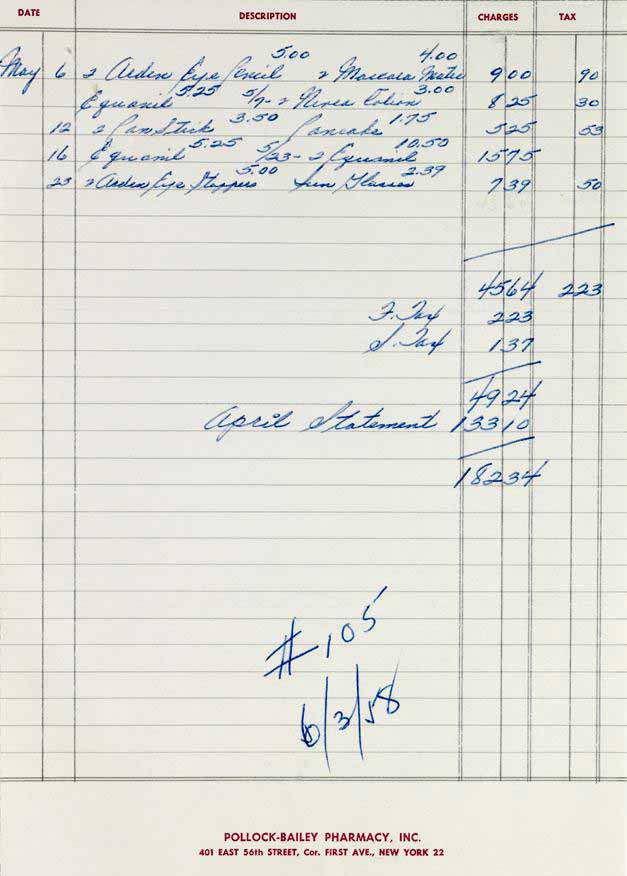 DATE DESCRIPTION CHARGES TAX
5.00 4.00
May 6 2 Arden Eye Pencil 2 Mascara Matic 9 00 90
5.25 3.00
Equanil 5/7- 2 Nivea Lotion 8 25 30
3.50 1.75
12 2 Pan Stick Pancake 5 25 53
5.25 10.50
16 Equanil 5/23- 2 Equanil 15 75
5.00 2.39
23 2 Arden Eye Stoppers Sun Glasses 7 39 50
45 64 2 23
F. Tax 2 23
S. Tax 1 37
49 24
April Statement 133 10
182 34
# 105
6/3/58
POLLOCK-BAILEY PHARMACY, INC.
401 EAST 56th STREET, Cor. FIRST AVE., NEW YORK 22